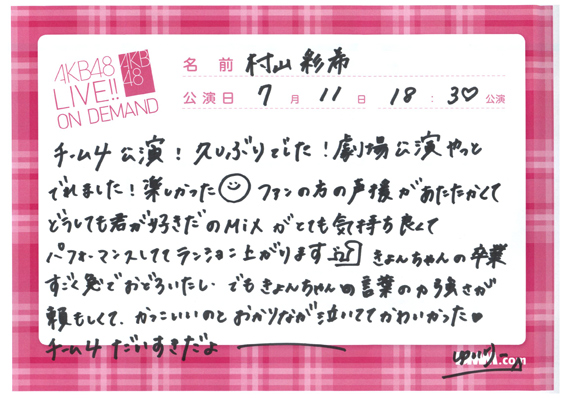 AKB48
LIVE!!
ON DEMAND
AKB
48
名前 村山彩希
公演日 7月11日 18:30公演
チーム4公演！久しぶりでした！劇場公演やっと
でれました！楽しかった ファンの方の声援があたたかくて
どうしても君が好きだのMiXがとても気持ち良くて
パフォーマンスしててテンション上がります きょんちゃんの卒業
すごく急でおどろいたし でもきょんちゃんの言葉の力強さが
頼もしくて、かっこいいのと おかりなが泣いててかわいかった♥
チーム4 だいすきだよ
.com